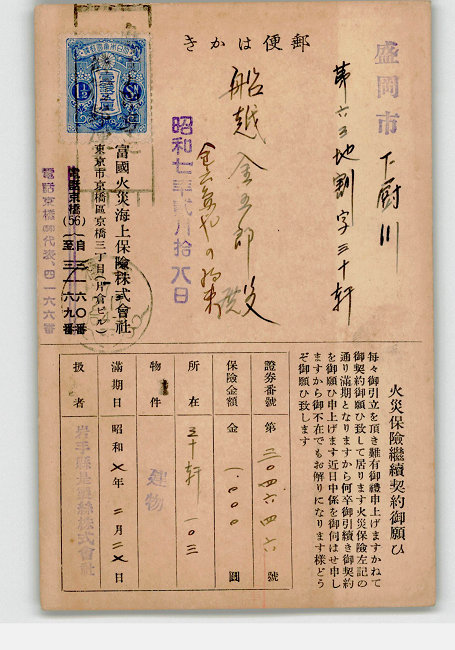 郵便はかき
盛岡市
下厨川
第六三地割字三十軒
船越金五郎殿
昭和七年貳月拾八日
富國火災海上保險株式會社
東京市京橋區京橋三丁目(片倉ビル)
電話京橋(56)自三一六〇番至三一六九番
電話京橋 代表、四一六六番
火災保險繼續契約御願ひ
每々御引立を頂き難有御禮申上げますかねて
御契約御願ひ致して居ります火災保險左記の
通り滿期となりますから何卒御引續き御契約
を御願ひ申上げます近日中係を御伺はせ申し
ますから御不在でもお解りになります樣どう
ぞ御願ひ致します
證券番號 第三〇四六四六號
保險金額 金一、〇〇〇圓
所在 三十軒一〇三
物件 建物
滿期日 昭和七年二月二七日
扱者 岩手縣是製絲株式會社